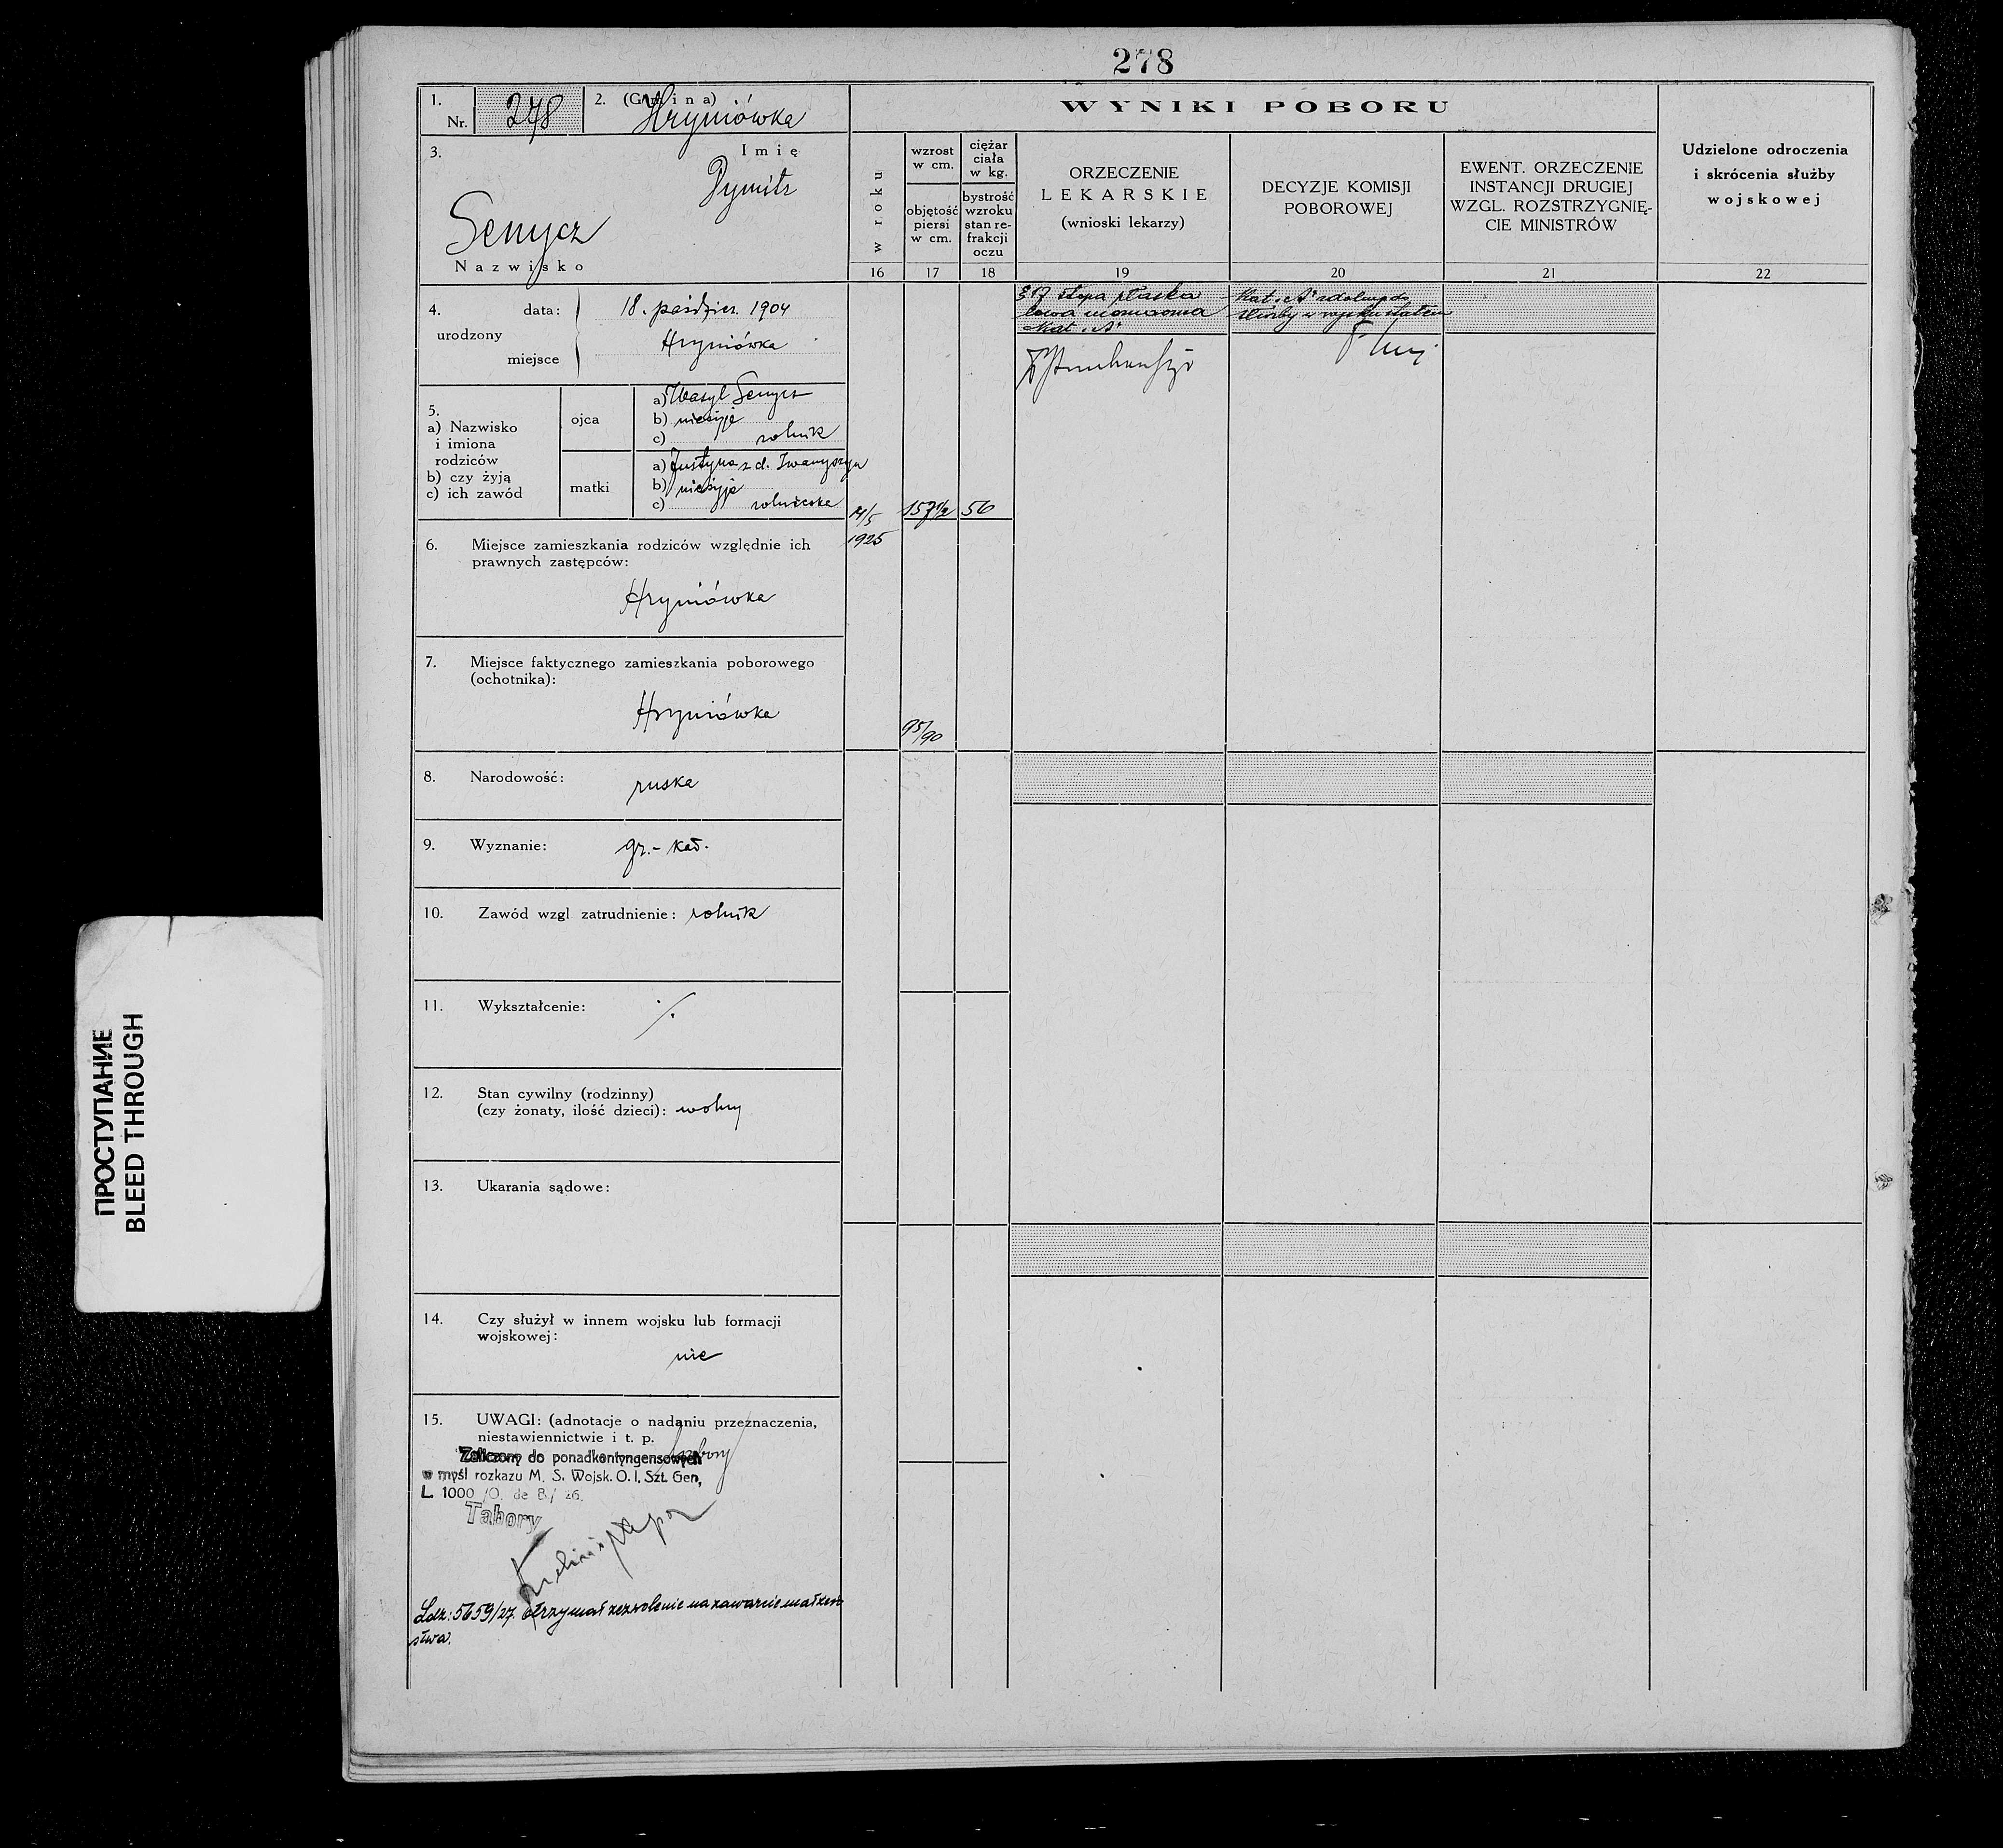 278
1.
Nr. 278
2. (Gmina) Hryniówka
3.
Imię
Dymitr
Senycz
Nazwisko
4. urodzony
data: 18. paździer. 1904
miejsce Hryniówka
5.
a) Nazwisko
i imiona
rodziców
b) czy żyją
c) ich zawód
ojca
a) Wasyl Senycz
b) nieżyje
c) rolnik
matki
a) Justyna z d. Iwanyszyn
b) nieżyje
c) rolniczka
6. Miejsce zamieszkania rodziców względnie ich
prawnych zastępców:
Hryniówka
7. Miejsce faktycznego zamieszkania poborowego
(ochotnika):
Hryniówka
8. Narodowość: ruska
9. Wyznanie: gr.-kat.
10. Zawód wzgl. zatrudnienie: rolnik
11. Wykształcenie: ·/.
12. Stan cywilny (rodzinny)
(czy żonaty, ilość dzieci): wolny
13. Ukarania sądowe:
14. Czy służył w innem wojsku lub formacji
wojskowej:
nie
15. UWAGI: (adnotacje o nadaniu przeznaczenia,
niestawiennictwie i t. p.
Zaliczony do ponadkontyngensowych
w myśl rozkazu M. S. Wojsk. O. I. Szt. Gen,
L. 1000 /O. de B./ 26.
Tabory
Ldz: 5659/27. otrzymał zezwolenie na zawarcie małżeń
stwa.
WYNIKI POBORU
w roku
wzrost
w cm.
objętość
piersi
w cm.
ciężar
ciała
w kg.
bystrość
wzroku
stan re-
frakcji
oczu
ORZECZENIE
LEKARSKIE
(wnioski lekarzy)
DECYZJE KOMISJI
POBOROWEJ
EWENT. ORZECZENIE
INSTANCJI DRUGIEJ
WZGL. ROZSTRZYGNIĘ-
CIE MINISTRÓW
Udzielone odroczenia
i skrócenia służby
wojskowej
16 17 18 19 20 21 22
stopa płaska
Kat. „A"
Kat. „A" zdolny do
służby w wojsku stałem
/5
1925
157 1/2
56
95/90
ПРОСТУПАНИЕ
BLEED THROUGH